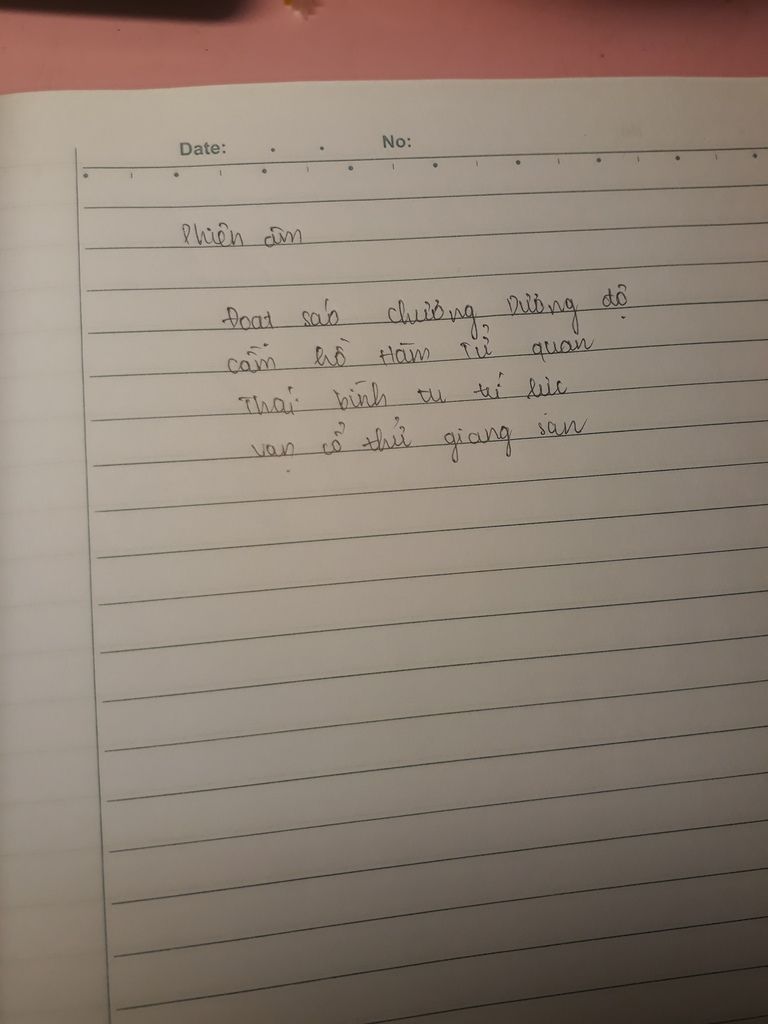 Date: No:
Phiên âm
Đoạt sáo Chương Dương độ
cầm hồ Hàm Tử quan
Thái bình tu trí lực
vạn cổ thử giang san